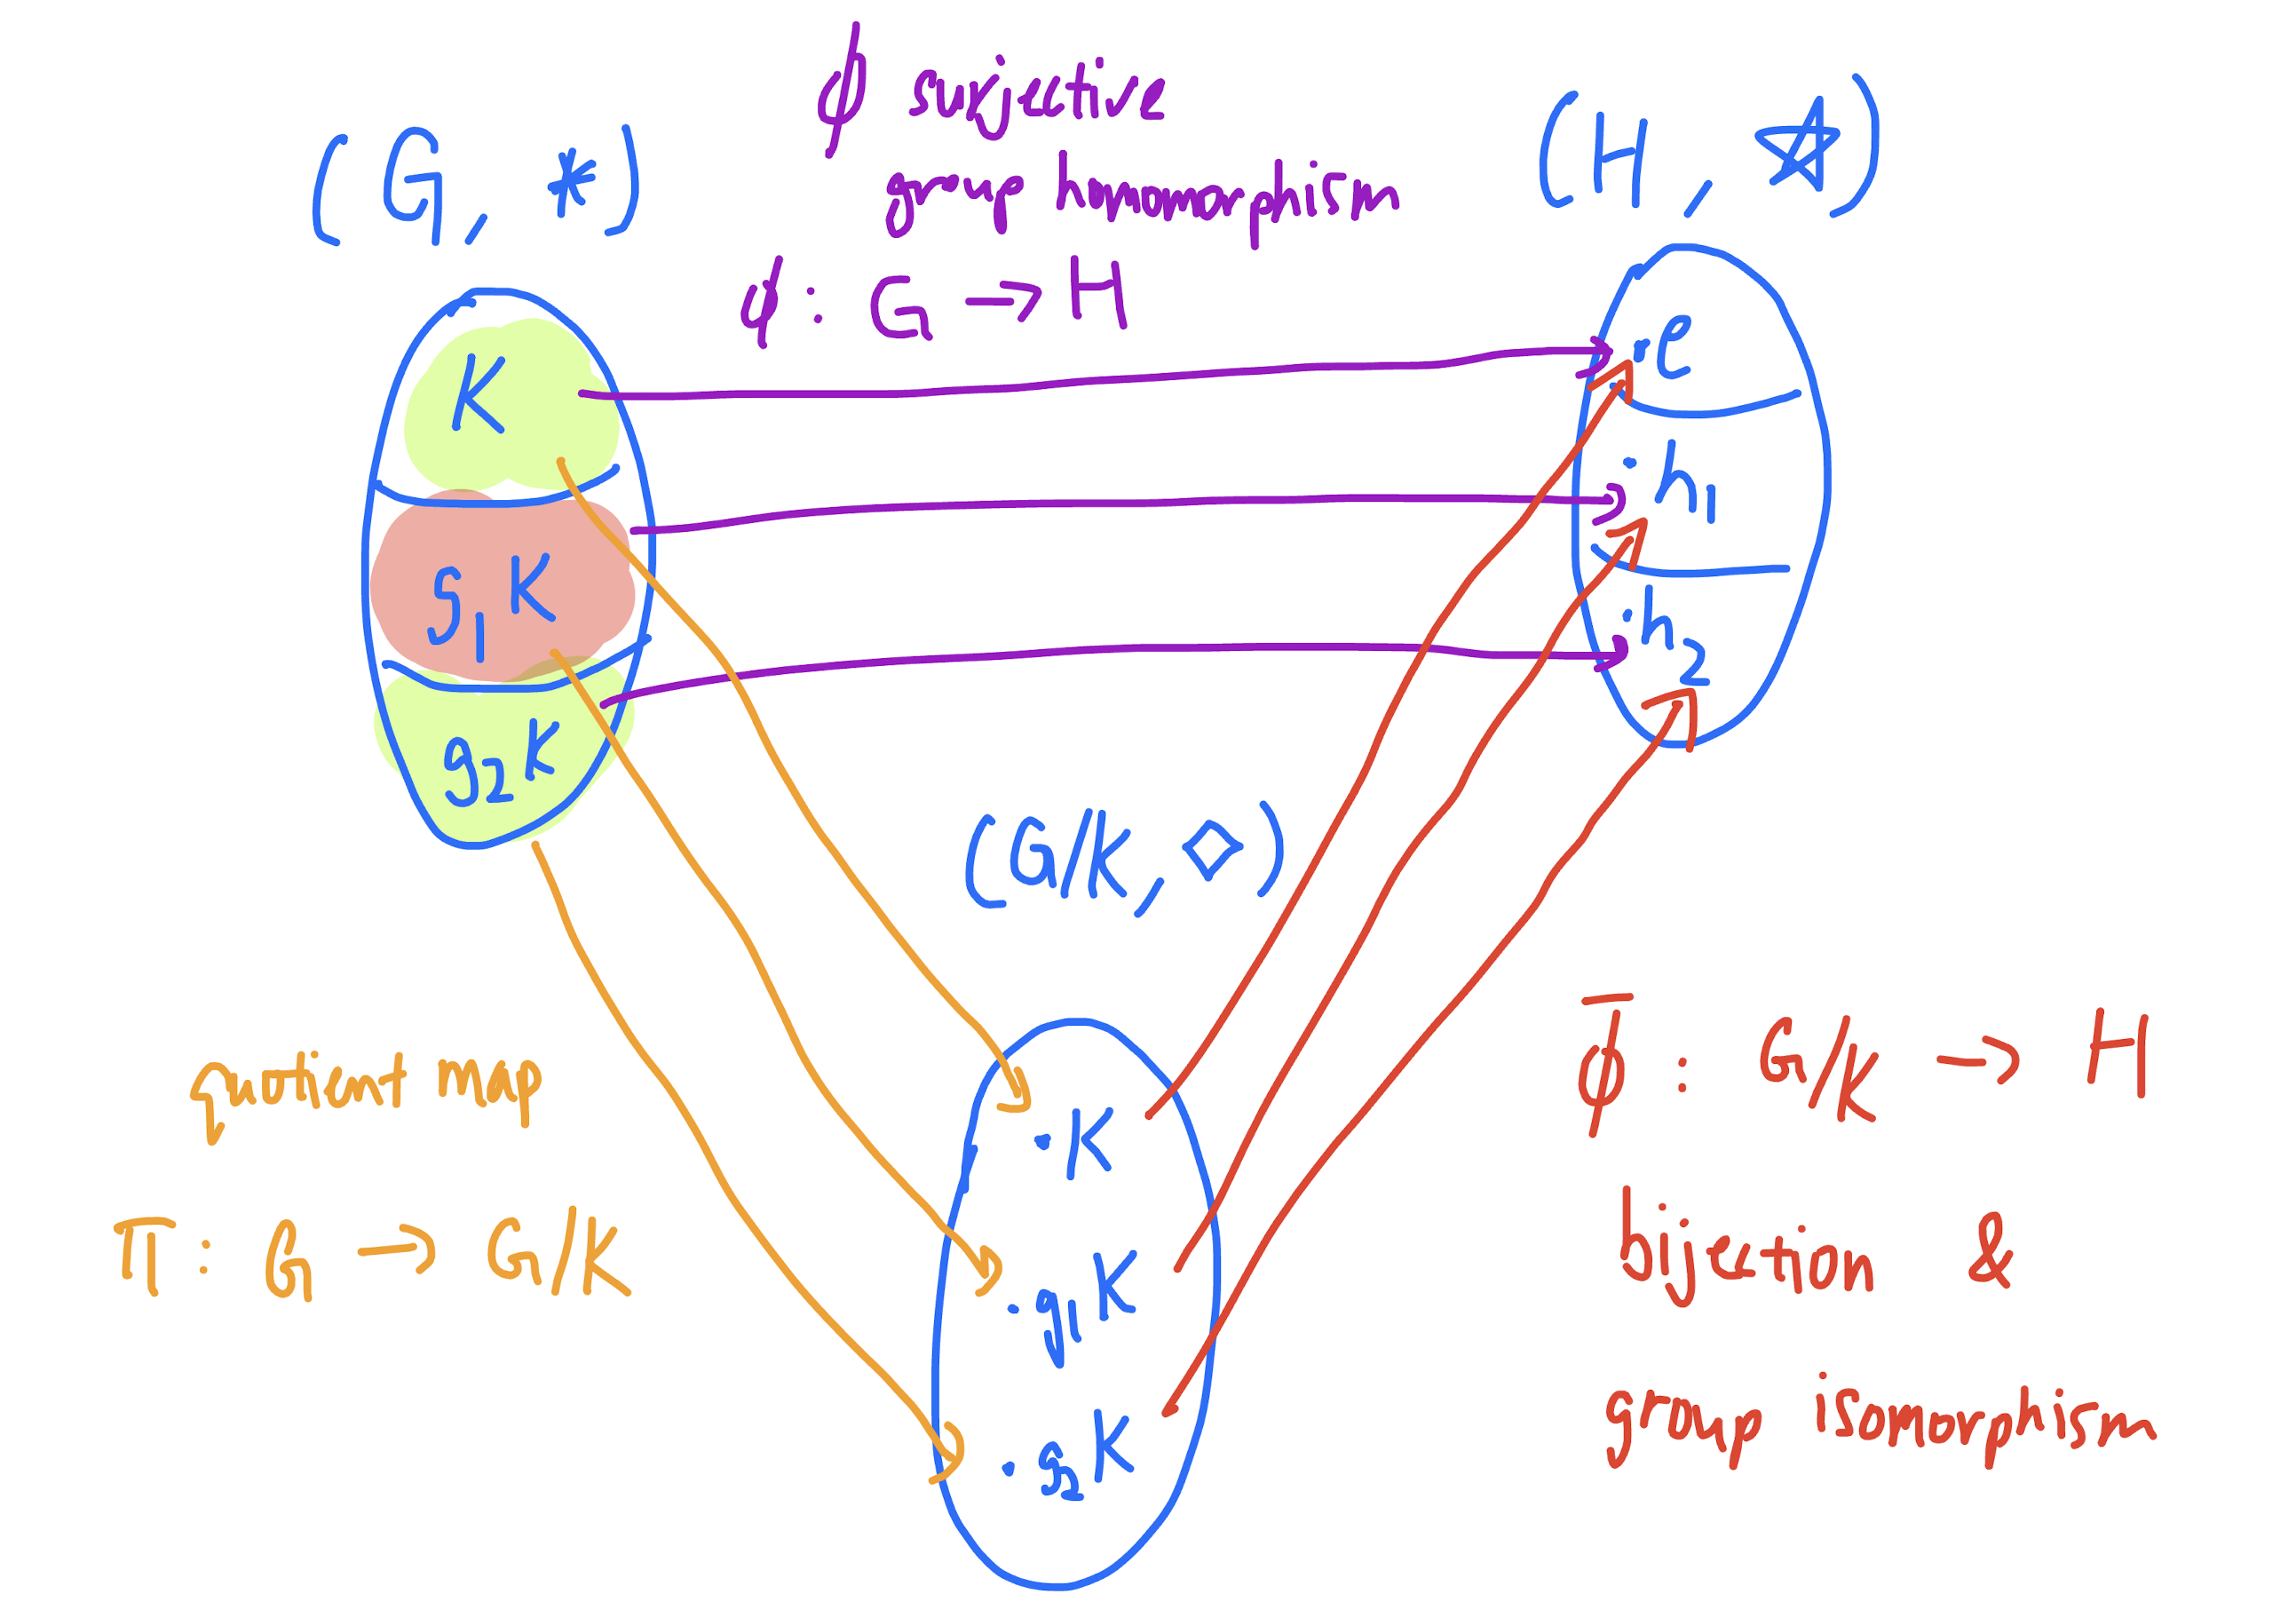 ϕ surjective
group homomorphism
ϕ : G → H
(G, *)
(H, ☆)
K
g₁K
g₂K
e
h₁
h₂
(G/K, ◇)
K
g₁K
g₂K
quotient map
π : G → G/K
ϕ̅ : G/K → H
bijection &
group isomorphism